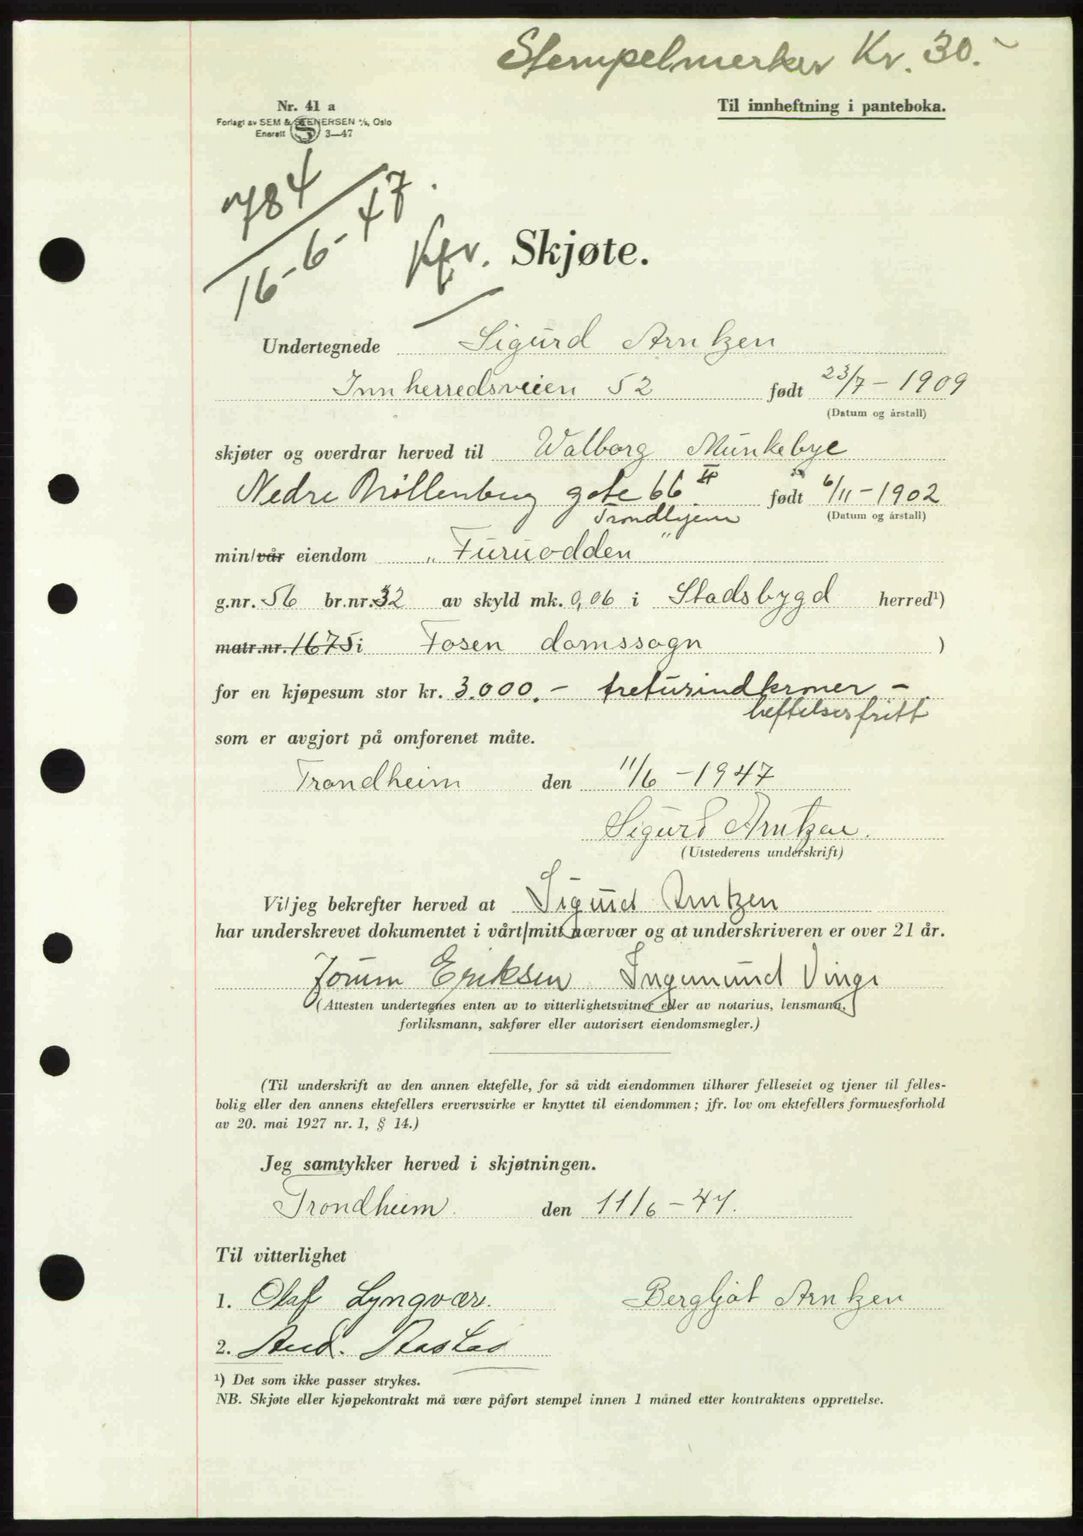 Stempelmerker Kr. 30.-
Nr. 41 a
Forlagt av SEM & STENERSEN A/s, Oslo
Enerett S 3—47
Til innheftning i panteboka.
784
16-6-47.
Kfr. Skjøte.
Undertegnede Sigurd Arntzen
Innherredsveien 52 født 23/7 - 1909
(Datum og årstall)
skjøter og overdrar herved til Walborg Munkebye
Nedre Møllenberg gate 66 II født 6/11 - 1902
Trondhjem (Datum og årstall)
min/vår eiendom „Furuodden"
g.nr. 56 br.nr. 32 av skyld mk. 0,06 i Stadsbygd herred¹)
matr.nr. 1675 i Fosen domssogn )
for en kjøpesum stor kr. 3.000.- tretusindkroner -
heftelsesfritt
som er avgjort på omforenet måte.
Trondheim den 11/6 - 1947
Sigurd Arntzen.
(Utstederens underskrift)
Vi/jeg bekrefter herved at Sigurd Arntzen
har underskrevet dokumentet i vårt/mitt nærvær og at underskriveren er over 21 år.
Jorunn Eriksen Ingemund
(Attesten undertegnes enten av to vitterlighetsvitner eller av notarius, lensmann,
forliksmann, sakfører eller autorisert eiendomsmegler.)
(Til underskrift av den annen ektefelle, for så vidt eiendommen tilhører felleseiet og tjener til felles-
bolig eller den annens ektefellers ervervsvirke er knyttet til eiendommen; jfr. lov om ektefellers formuesforhold
av 20. mai 1927 nr. 1, § 14.)
Jeg samtykker herved i skjøtningen.
Trondheim. den 11/6 - 47.
Til vitterlighet
1. Olaf Lyngvær. Bergljot Arntzen
2. And.
¹) Det som ikke passer strykes.
NB. Skjøte eller kjøpekontrakt må være påført stempel innen 1 måned etter kontraktens opprettelse.